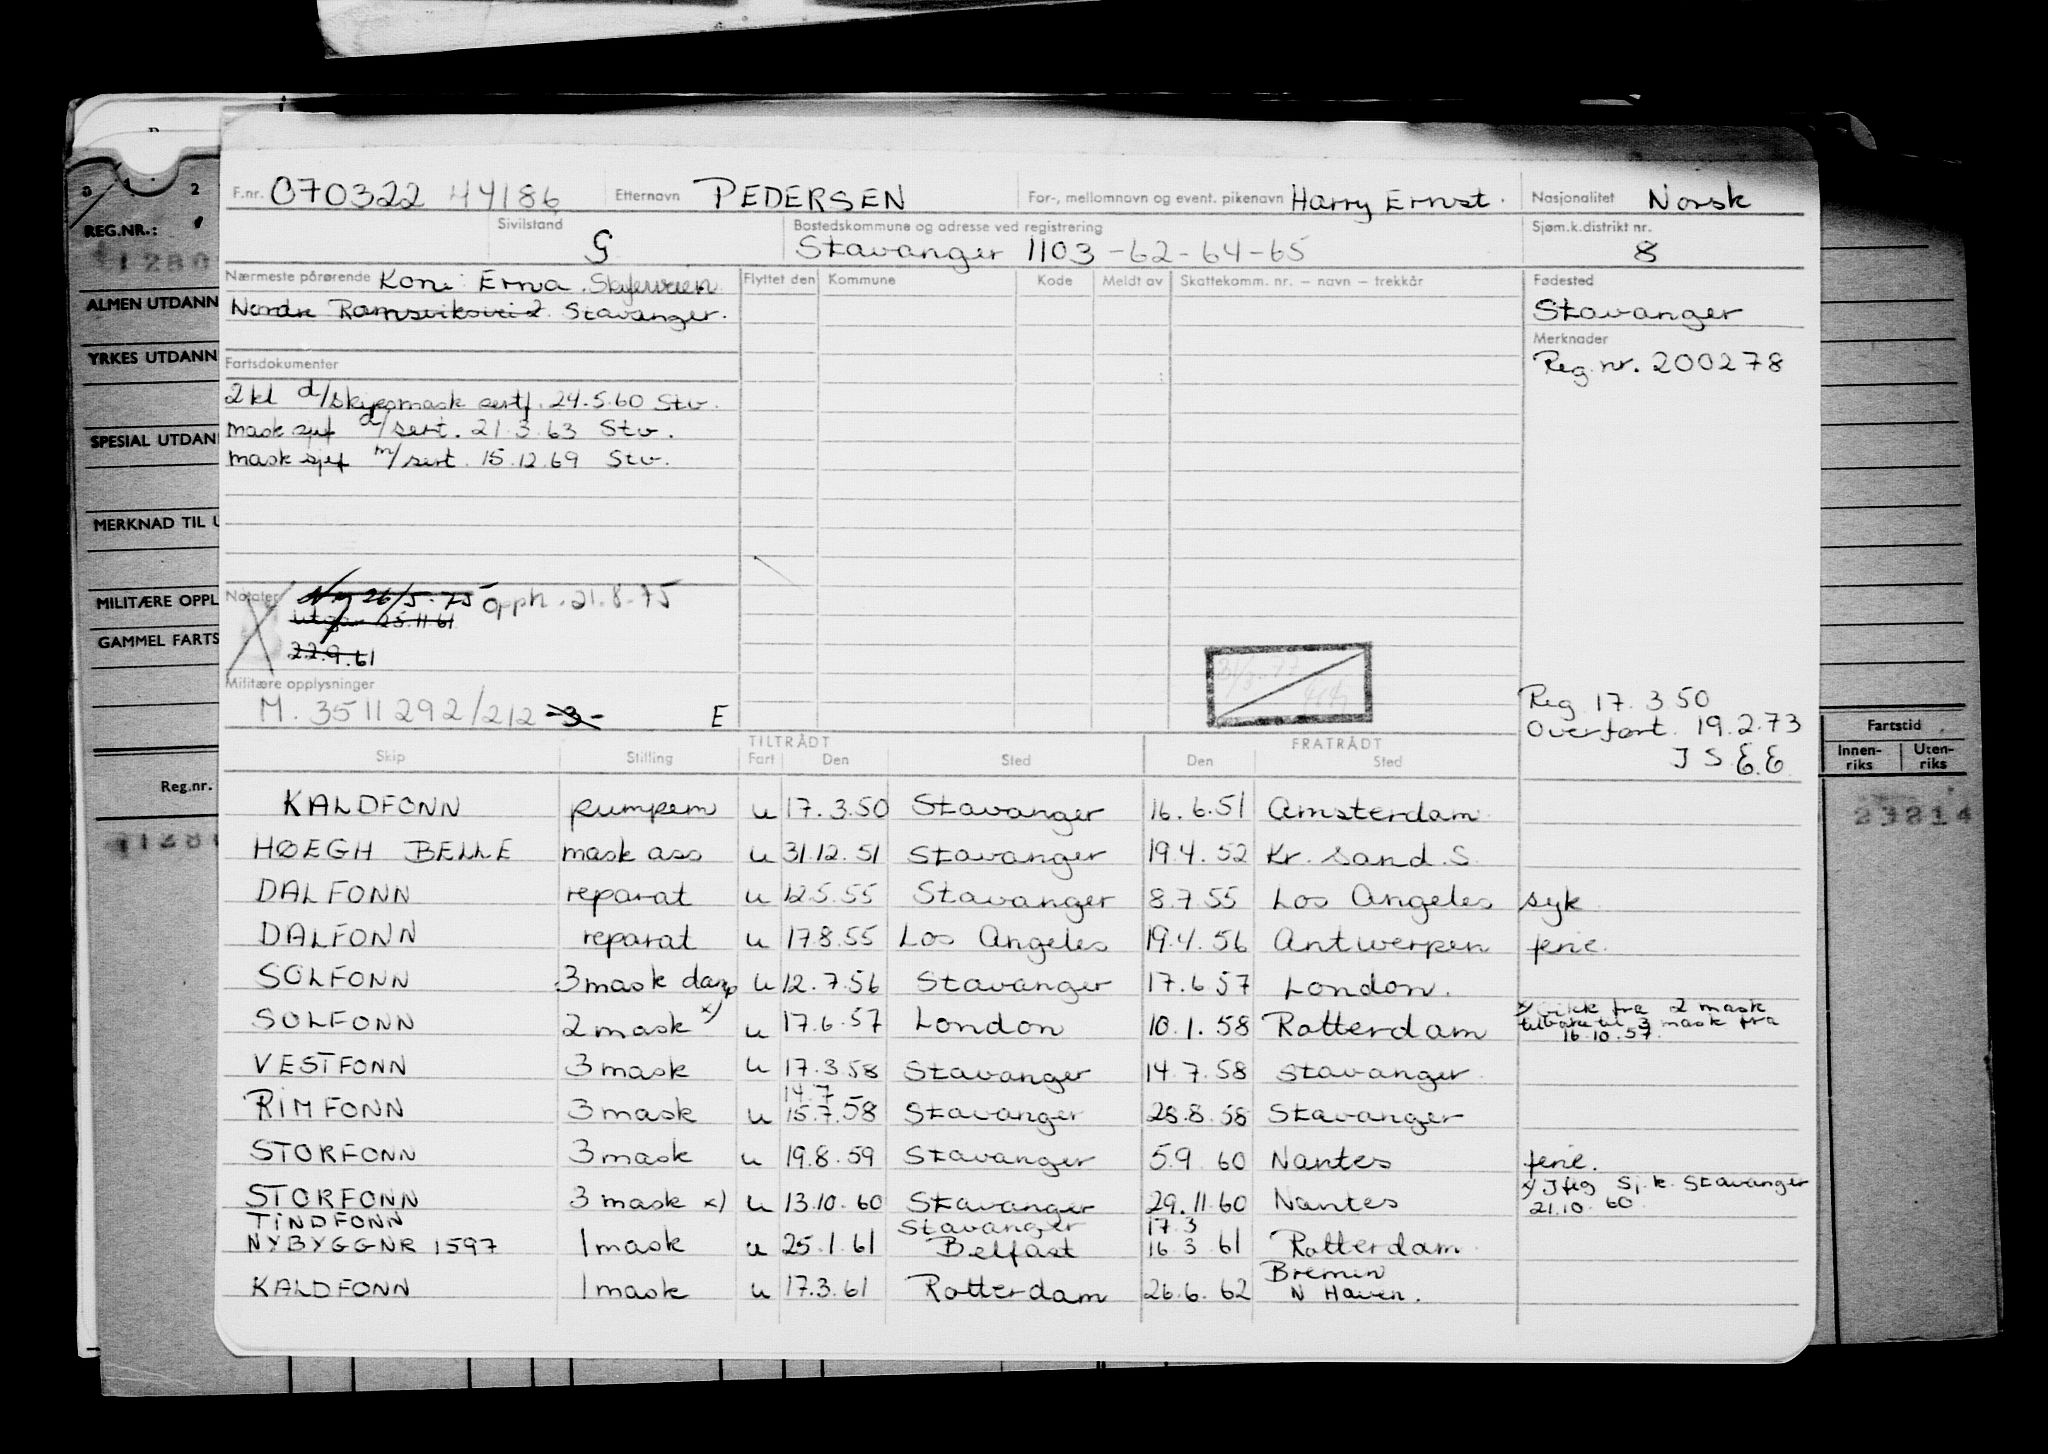 F.nr. 070322 44186 Etternavn PEDERSEN For-, mellomnavn og event. pikenavn Harry Ernst. Nasjonalitet Norsk
Sivilstand G Bostedskommune og adresse ved registrering Stavanger 1103-62-64-65 Sjøm.k.distrikt nr. 8
Nærmeste pårørende Koni Erna Flyttet den Kommune Kode Meldt av Skattekomm. nr. – navn – trekkår Fødested
Nordre Ramsviksvei 2 Stavanger. Stavanger
Merknader
Fartsdokumenter Reg. nr. 200278
2 kl d/skipsmask sertf. 24.5.60 Stv.
mask sjef d/sert. 21.3.63 Stv.
mask sjef m/sert. 15.12.69 Stv.
Notater Ny 26/5-75 Opph. 21.8.75
Utgår 25.11.61
22.9.61
Militære opplysninger
M. 3511292/212 -3- E
Reg 17.3.50
Overført. 19.2.73
J S E.E
TILTRÅDT FRATRÅDT
Skip Stilling Fart Den Sted Den Sted
KALDFONN pumpem u 17.3.50 Stavanger 16.6.51 Amsterdam
HØEGH BELLE mask ass u 31.12.51 Stavanger 19.4.52 Kr. Sand. S.
DALFONN reparat u 12.5.55 Stavanger 8.7.55 Los Angeles syk
DALFONN reparat u 17.8.55 Los Angeles 19.4.56 Antwerpen ferie.
SOLFONN 3 mask damp u 12.7.56 Stavanger 17.6.57 London.
SOLFONN 2 mask x) u 17.6.57 London 10.1.58 Rotterdam x) gikk fra 2 mask
tilbake til 3 mask fra
16.10.57.
VESTFONN 3 mask u 17.3.58 Stavanger 14.7.58 Stavanger
14.7
RIMFONN 3 mask u 15.7.58 Stavanger 28.8.58 Stavanger
STORFONN 3 mask u 19.8.59 Stavanger 5.9.60 Nantes ferie.
STORFONN 3 mask x) u 13.10.60 Stavanger 29.11.60 Nantes x) Jføg Sj.k. Stavanger
21.10.60.
TINDFONN Stavanger 17.3
NYBYGGNR 1597 1 mask u 25.1.61 Belfast 16.3.61 Rotterdam
Bremen
KALDFONN 1 mask u 17.3.61 Rotterdam 26.6.62 N Haven.
REG.NR.:
ALMEN UTDANN
YRKES UTDANN
SPESIAL UTDAN
MERKNAD TIL U
MILITÆRE OPPL
GAMMEL FARTS
Reg.nr.
Fartstid
Innen-riks Uten-riks
23214